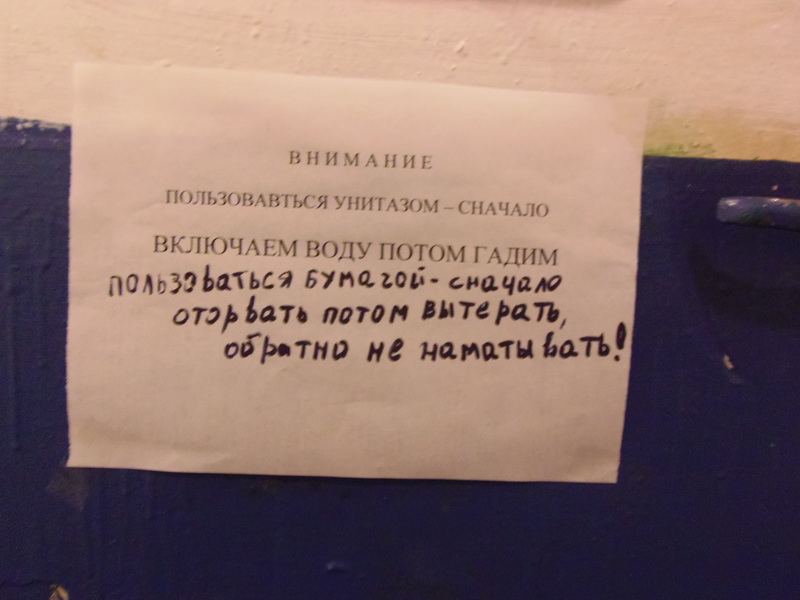 ВНИМАНИЕ
ПОЛЬЗОВАВТЬСЯ УНИТАЗОМ – СНАЧАЛО
ВКЛЮЧАЕМ ВОДУ ПОТОМ ГАДИМ
пользоваться бумагой - сначало
оторвать потом вытерать,
обратно не наматывать!